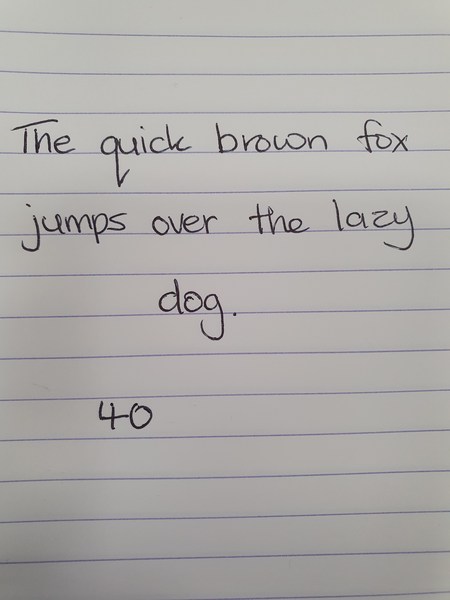 The quick brown fox
jumps over the lazy
dog.
40